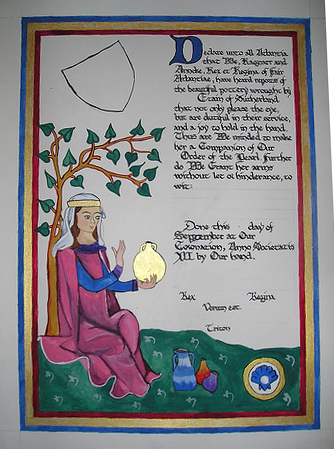 Declare unto all Atlantia
that We, Ragnarr and
Anneke, Rex et Regina of fair
Atlantiae, have heard reports of
the beautiful pottery wrought by
Etain of Sutherland
that not only please the eye,
but are dutiful in their service,
and a joy to hold in the hand.
Thus are We minded to make
her a Companion of Our
Order of the Pearl. Further
do We Grant her arms
without let or hinderance, to
wit:
Done this day of
September at Our
Coronation, Anno Societatis
by Our hand.
Rex Regina
Verum est.
Triton